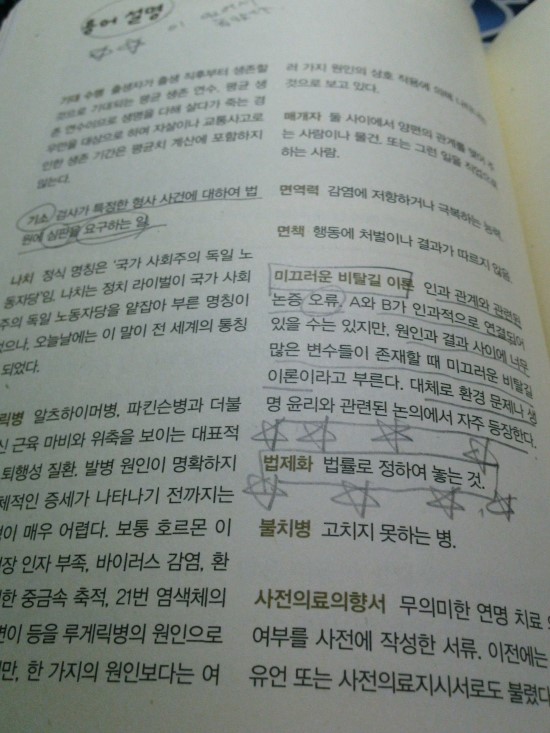 용어 설명
기대 수명 출생자가 출생 직후부터 생존할
것으로 기대되는 평균 생존 연수. 평균 생
존 연수이므로 생명을 다해 살다가 죽는 경
우만을 대상으로 하며 자살이나 교통사고로
인한 생존 기간은 평균치 계산에 포함하지
않는다.
기소 검사가 특정한 형사 사건에 대하여 법
원에 심판을 요구하는 일.
나치 정식 명칭은 '국가 사회주의 독일 노
동자당'임. 나치는 정치 라이벌이 국가 사회
주의 독일 노동자당을 얕잡아 부른 명칭이
었으나, 오늘날에는 이 말이 전 세계의 통칭
되었다.
릭병 알츠하이머병, 파킨슨병과 더불
신 근육 마비와 위축을 보이는 대표적
퇴행성 질환. 발병 원인이 명확하지
체적인 증세가 나타나기 전까지는
이 매우 어렵다. 보통 호르몬 이
장 인자 부족, 바이러스 감염, 환
한 중금속 축적, 21번 염색체의
변이 등을 루게릭병의 원인으로
만, 한 가지의 원인보다는 여
러 가지 원인의 상호 작용에 의해
것으로 보고 있다.
매개자 둘 사이에서 양편의 관계를 맺어 주
는 사람이나 물건. 또는 그런 일을 직업으로
하는 사람.
면역력 감염에 저항하거나 극복하는 능력.
면책 행동에 처벌이나 결과가 따르지 않음.
미끄러운 비탈길 이론 인과 관계와 관련된
논증 오류. A와 B가 인과적으로 연결되어
있을 수는 있지만, 원인과 결과 사이에 너무
많은 변수들이 존재할 때 미끄러운 비탈길
이론이라고 부른다. 대체로 환경 문제나 생
명 윤리와 관련된 논의에서 자주 등장한다.
법제화 법률로 정하여 놓는 것.
불치병 고치지 못하는 병.
사전의료의향서 무의미한 연명 치료
여부를 사전에 작성한 서류. 이전에는
유언 또는 사전의료지시서로도 불렸다